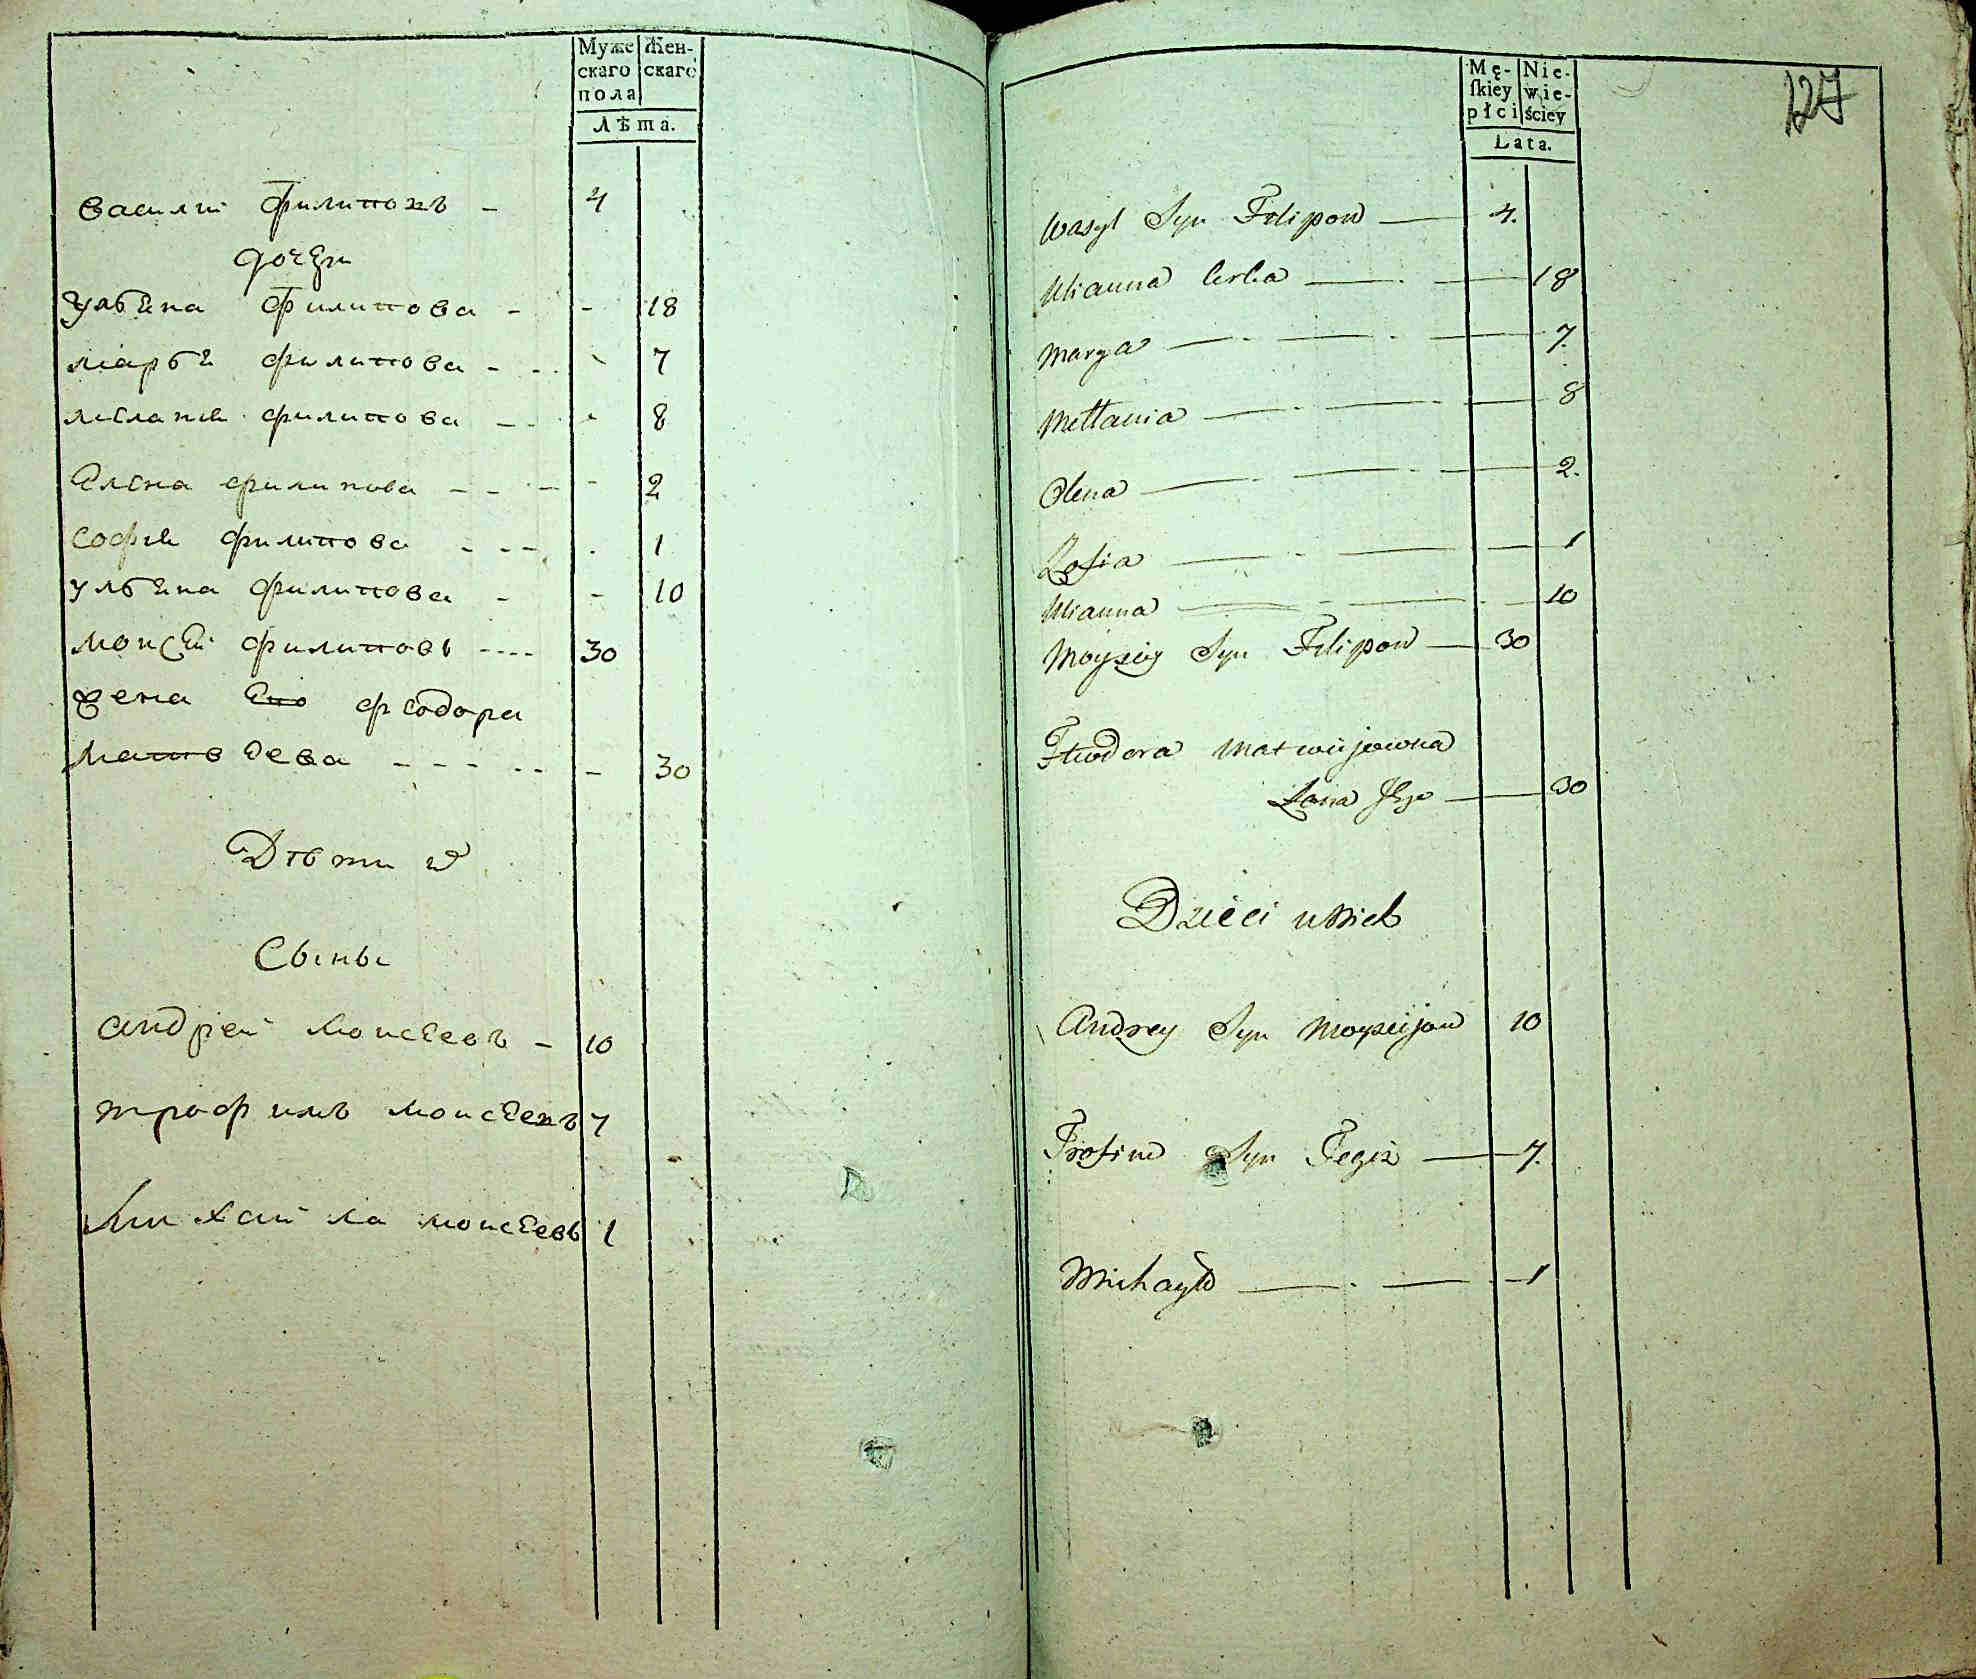 Муже
скаго
пола
Жен-
скаго
Лѣта.
Василий Филиповъ - 4
дочери
Ульяна Филипова - - 18
Марья Филипова - - 7
Мелания Филипова - - 8
Елена Филипова - - - 2
София Филипова - - - 1
Ульяна Филипова - - 10
Моисей Филиповъ - - - - 30
Жена Его Феодора
Матвеева - - - - - - 30
Дѣти
Сыны
Андрей Моисеевъ - 10
Трофимъ Моисеевъ 7
Михайла Моисеевъ 1
Mę-
skiey
płci
Nie-
wie-
ściey
Lata.
127
Wasyl Syn Filipow 4.
Ulianna Corka 18
Marya 7.
Mełłania 8
Olena 2.
Zofia 1
Ulianna 10
Moyziey Syn Filipow 30
Fteodora Matwiijowna
Żona Jego 30
Dzieci u Nich
Andrey Syn Moyziijow 10
Trofim Syn Tegoż 7.
Michayło 1